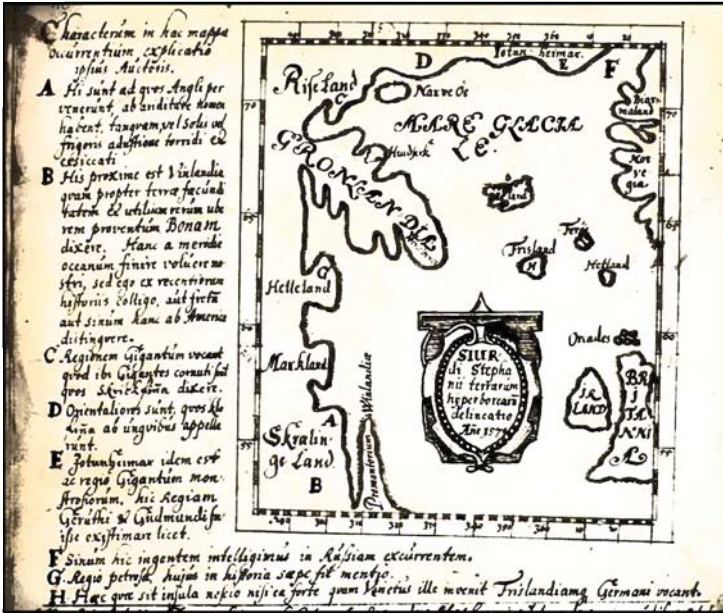 Characterum in hac mappa
occurrentium explicatio
ipsius Auctoris.
A Hi sunt ad quos Angli per
venerunt, ab ariditate nomen
habent, tanquam vel Solis vel
frigoris adustione torridi et
exsiccati
B His proxime est Vinlandia
quam propter terræ fæcundi
tatem et utilium rerum ube
rem proventum Bonam
dixere. Hanc a meridie
oceanum finire voluere no
stri, sed ego ex recentiorum
historiis colligo, aut fretum
aut sinum hanc ab America
distinguere.
C Regionem Gigantum vocant
quod ibi Gigantes cornuti sint
quos Skrickfinna dixere.
D Orientaliores sunt, quos Klo
finna ab unguibus appella
runt.
E Jotunheimar idem est
ac regio Gigantum mon
strosorum, hic Regiam
Geruthi & Gudmundi fu
isse existimare licet.
F Sinum hic ingentem intelligimus in Russiam excurrentem.
G. Regio petrosa, hujus in historia sæpe fit mentio.
H Hæc quæ sit insula nescio nisi ea forte quam Venetus ille invenit Frislandiamq Germani vocant.
D
Jotun heimar.
E
F
Riseland
C
Narve Oe
Biar
maland
MARE GLACIA
LE.
GRONLANDIA
Nor
vegia
land
Frisland
H
Ferö
Hetland
Helleland
G
Markland
A
Skralin
ge Land
B
Promontorium Winlandiæ
SIUR
di Stepha
nii terrarum
hyperborearū
delineatio
Año 1570
IR
LAND
BRI
TAN
NIA
70
65
60
55
70
65
60
55